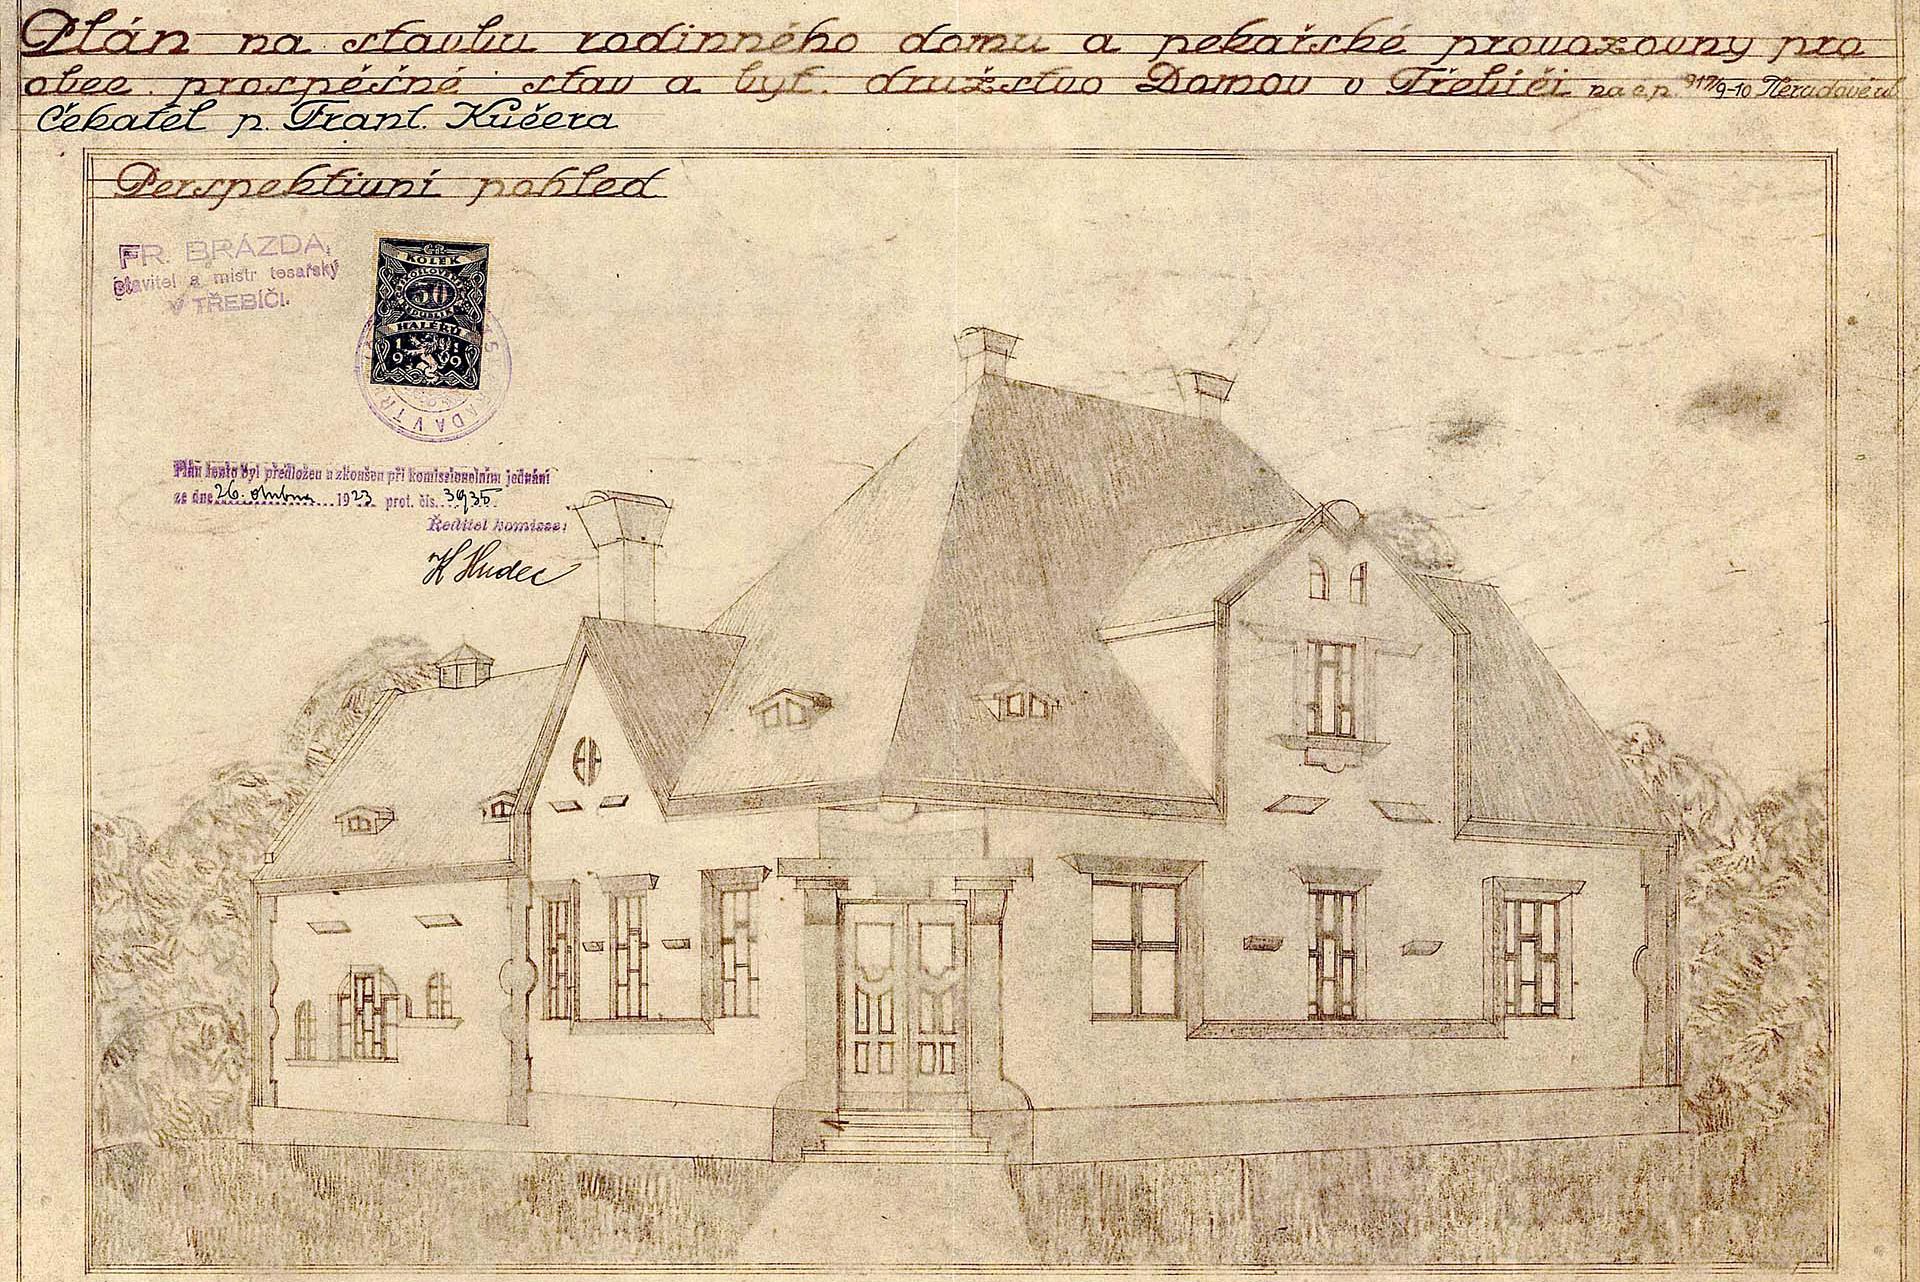 Plán na stavbu rodinného domu a pekařské provozovny pro
obec. prospěšné stav a byt. družstvo Domov v Třebíči na č.p. 917/9-10
Čekatel p. Frant. Kučera
Perspektivní pohled
FR. BRÁZDA,
stavitel a mistr tesařský
V TŘEBÍČI.
KOLEK
50
HALÉŘŮ
1919
Plán tento byl předložen a zkoušen při komissionelním jednání
ze dne 26. dubna 1923 prot. čís. 3935
Ředitel komisse:
Hudec